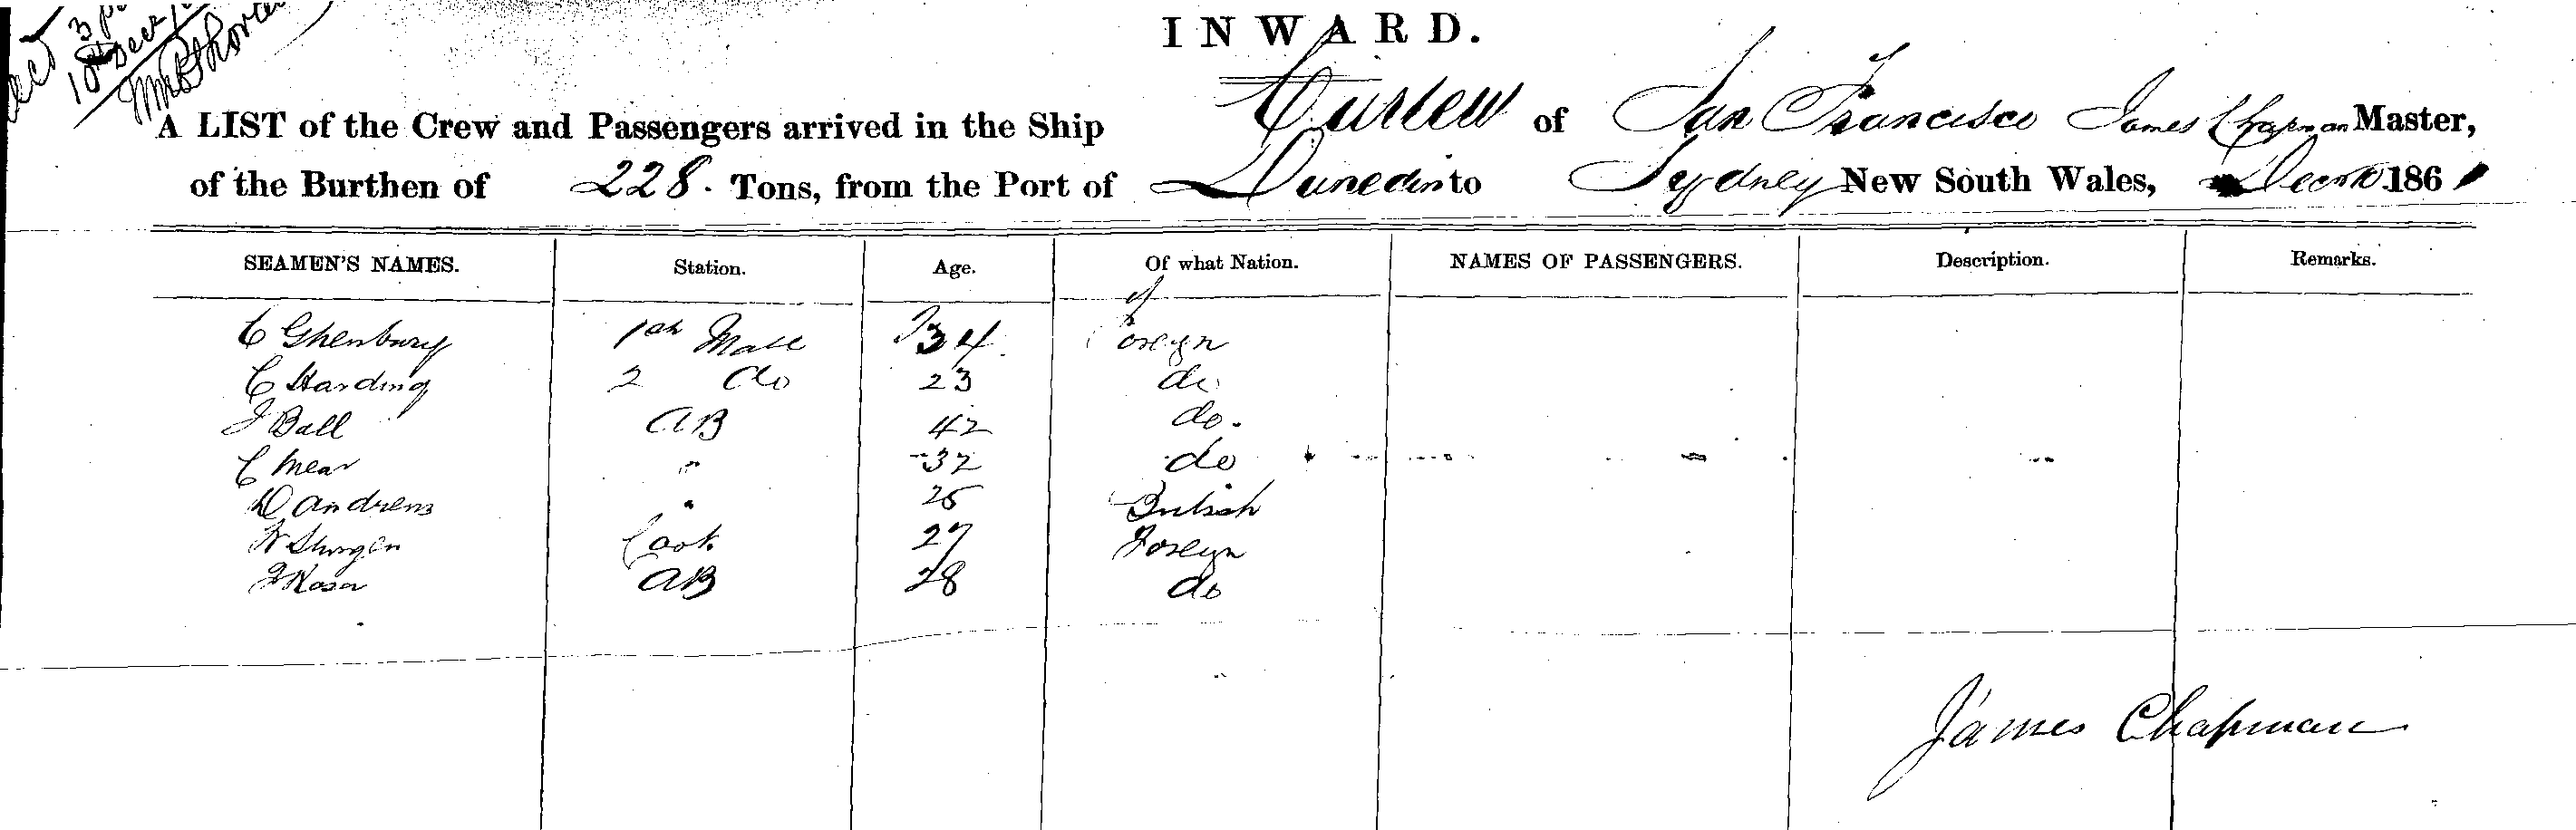 3
10th Decr
INWARD.
A LIST of the Crew and Passengers arrived in the Ship Curlew of San Francisco James Chapman Master,
of the Burthen of 228. Tons, from the Port of Dunedin to Sydney New South Wales, Decr 10 1861
SEAMEN'S NAMES. Station. Age. Of what Nation. NAMES OF PASSENGERS. Description. Remarks.
C 1st Mate 34 Foreign
C Harding 2 do 23 do
J Ball AB 42 do.
C Mear " 32 do
D Andrews " 25 British
Cook 27 Foreign
AB 28 do
James Chapman